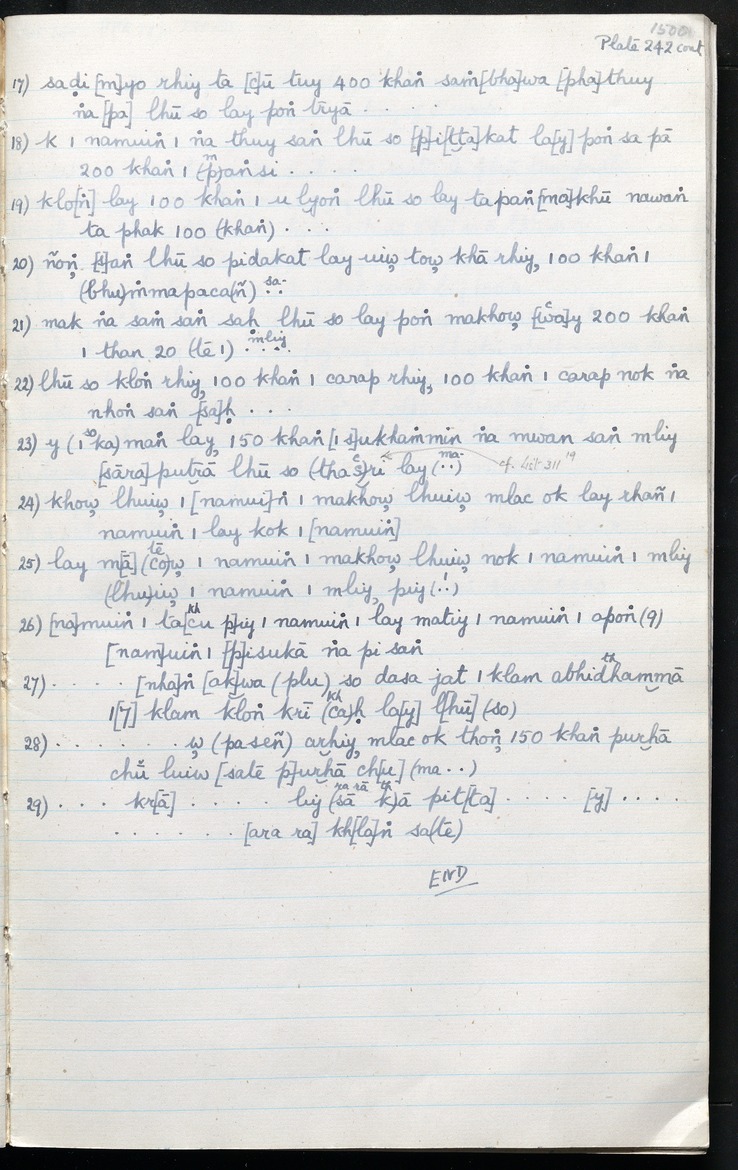 1500
Plate 242 cont
17) sadi [m]yo rhiy ta [c]ū tuy 400 khaṅ saṁ[bha]wa [pha]thuy
ṅa [pa] lhū so lay poṅ tryā . . . .
18) k 1 namuiṅ 1 ṅa thuy saṅ lhū so [p]i[ṭṭa]kat la[y] poṅ sa pā
200 khaṅ 1 (p)aṅsi . . . .
19) klo[ṅ] lay 100 khaṅ 1 u lyoṅ lhū so lay tapaṅ[ma]khū nawaṅ
ta phak 100 (khaṅ) . . .
20) ñoṅ. [s]aṅ lhū so pidakat lay uiw tow khā rhiy, 100 khaṅ 1
(bhu)ṁmapaca(ñ) sa- . .
21) mak ṅa saṁ saṅ saḥ lhū so lay poṅ makhow [wa]y 200 khaṅ
1 than 20 (tē 1) ṁliy . . . .
22) lhū so kloṅ rhiy, 100 khaṅ 1 carap rhiy, 100 khaṅ 1 carap nok ṅa
nhoṅ saṅ [sa]ḥ . . .
23) y (1 so ka) maṅ lay, 150 khaṅ [1 s]ukhaṁmin ṅa mwan saṅ mliy
[sāra]putrā lhū so (tha s)ri lay (ma . .) cf. list 311 19
24) khow lhuiw 1 [namui]ṅ 1 makhow lhuiw mlac ok lay rhañ 1
namuiṅ 1 lay kok 1 [namuiṅ]
25) lay m[ā] (co)w tē 1 namuiṅ 1 makhow lhuiw nok 1 namuiṅ 1 mliy
(lhu)iw 1 namuiṅ 1 mliy, piy (. .)
26) [na]muiṅ 1 ta[cu p]iy 1 namuiṅ 1 lay matiy 1 namuiṅ 1 apoṅ (9)
[nam]uiṅ 1 [p]isukā ṅa pi saṅ
27) . . . . . [nha]ṅ [ak]wa (plu) so dasa jat 1 klam abhidhammā
1[7] klam kloṅ krī (ca)ḥ la[y] l[hū] (so)
28) . . . . . . . . w (paseñ) arhiy, mlac ok thoṅ, 150 khaṅ purhā
chū luiw [satē p]urhā ch[u] (ma . .)
29) . . . . kr[ā] . . . . . . liy (sā k)ā pit[ta] . . . . . [y] . . . .
. . . . . . . [ara ra] kh[la]ṅ sa(tē)
END